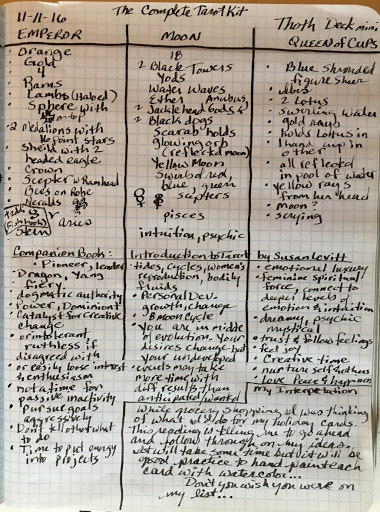 11-11-16
The Complete Tarot Kit
Thoth Deck mini
EMPEROR
MOON
QUEEN of CUPS
Orange
Gold
4
Rams
Lambs
Sphere with
on top
2 Medallions with
10 point stars
Shield with 2
headed eagle
Crown
Scepter w/Ramhead
Bees on Robe
Heralds
aries
18
2 Black Towers
Yods
Water Waves
Ether Anubus,
2 Jackelhead Gods &
2 Black dogs
Scarab holds
glowing orb
(reflected moon)
Yellow Moon
Swirled red,
blue, green
scepters
pisces
intuition, psychic
Blue shrouded
figure
ibis
2 Lotus
Swirling water
gold rays
holds Lotus in
1 hand, up in
other
all reflected
in pool of water
yellow rays
from her head
Moon?
scrying
Companion Book:
Pioneer, leader
Dragon, Yang
fiery
dogmatic authority
Power, Dominion
Catalyst for creative
change
or intolerant
ruthless if
disagreed with
or easily lose interest
& enthusiasm
not a time for
passive inactivity
Pursue goals
aggressively
Don't tell other what
to do
Time to put energy
into projects
Introduction to Tarot
tides, cycles, women's
reproduction, bodily
fluids
Personal Dev.
growth, change
8 moon cycle
You are in middle
of evolution. Your
desires change but
your undeveloped
events may take
more time with
diff results than
anticipated/wanted
by Susan Levitt
emotional luxury
feminine spiritual
force, connect to
deeper levels of
emotions & intuition
dreamy, psychic
mystical
trust & follow feelings
feel joy
Creative time
nurture self & others
Love Peace & happiness
My Interpretation
While grocery shopping I was thinking
of what I'd do for my holiday cards.
This reading is telling me to go ahead
and follow through on my ideas.
It will take some time but it will be
good practice to hand paint each
card with watercolor...
Don't you wish you were on
my list...